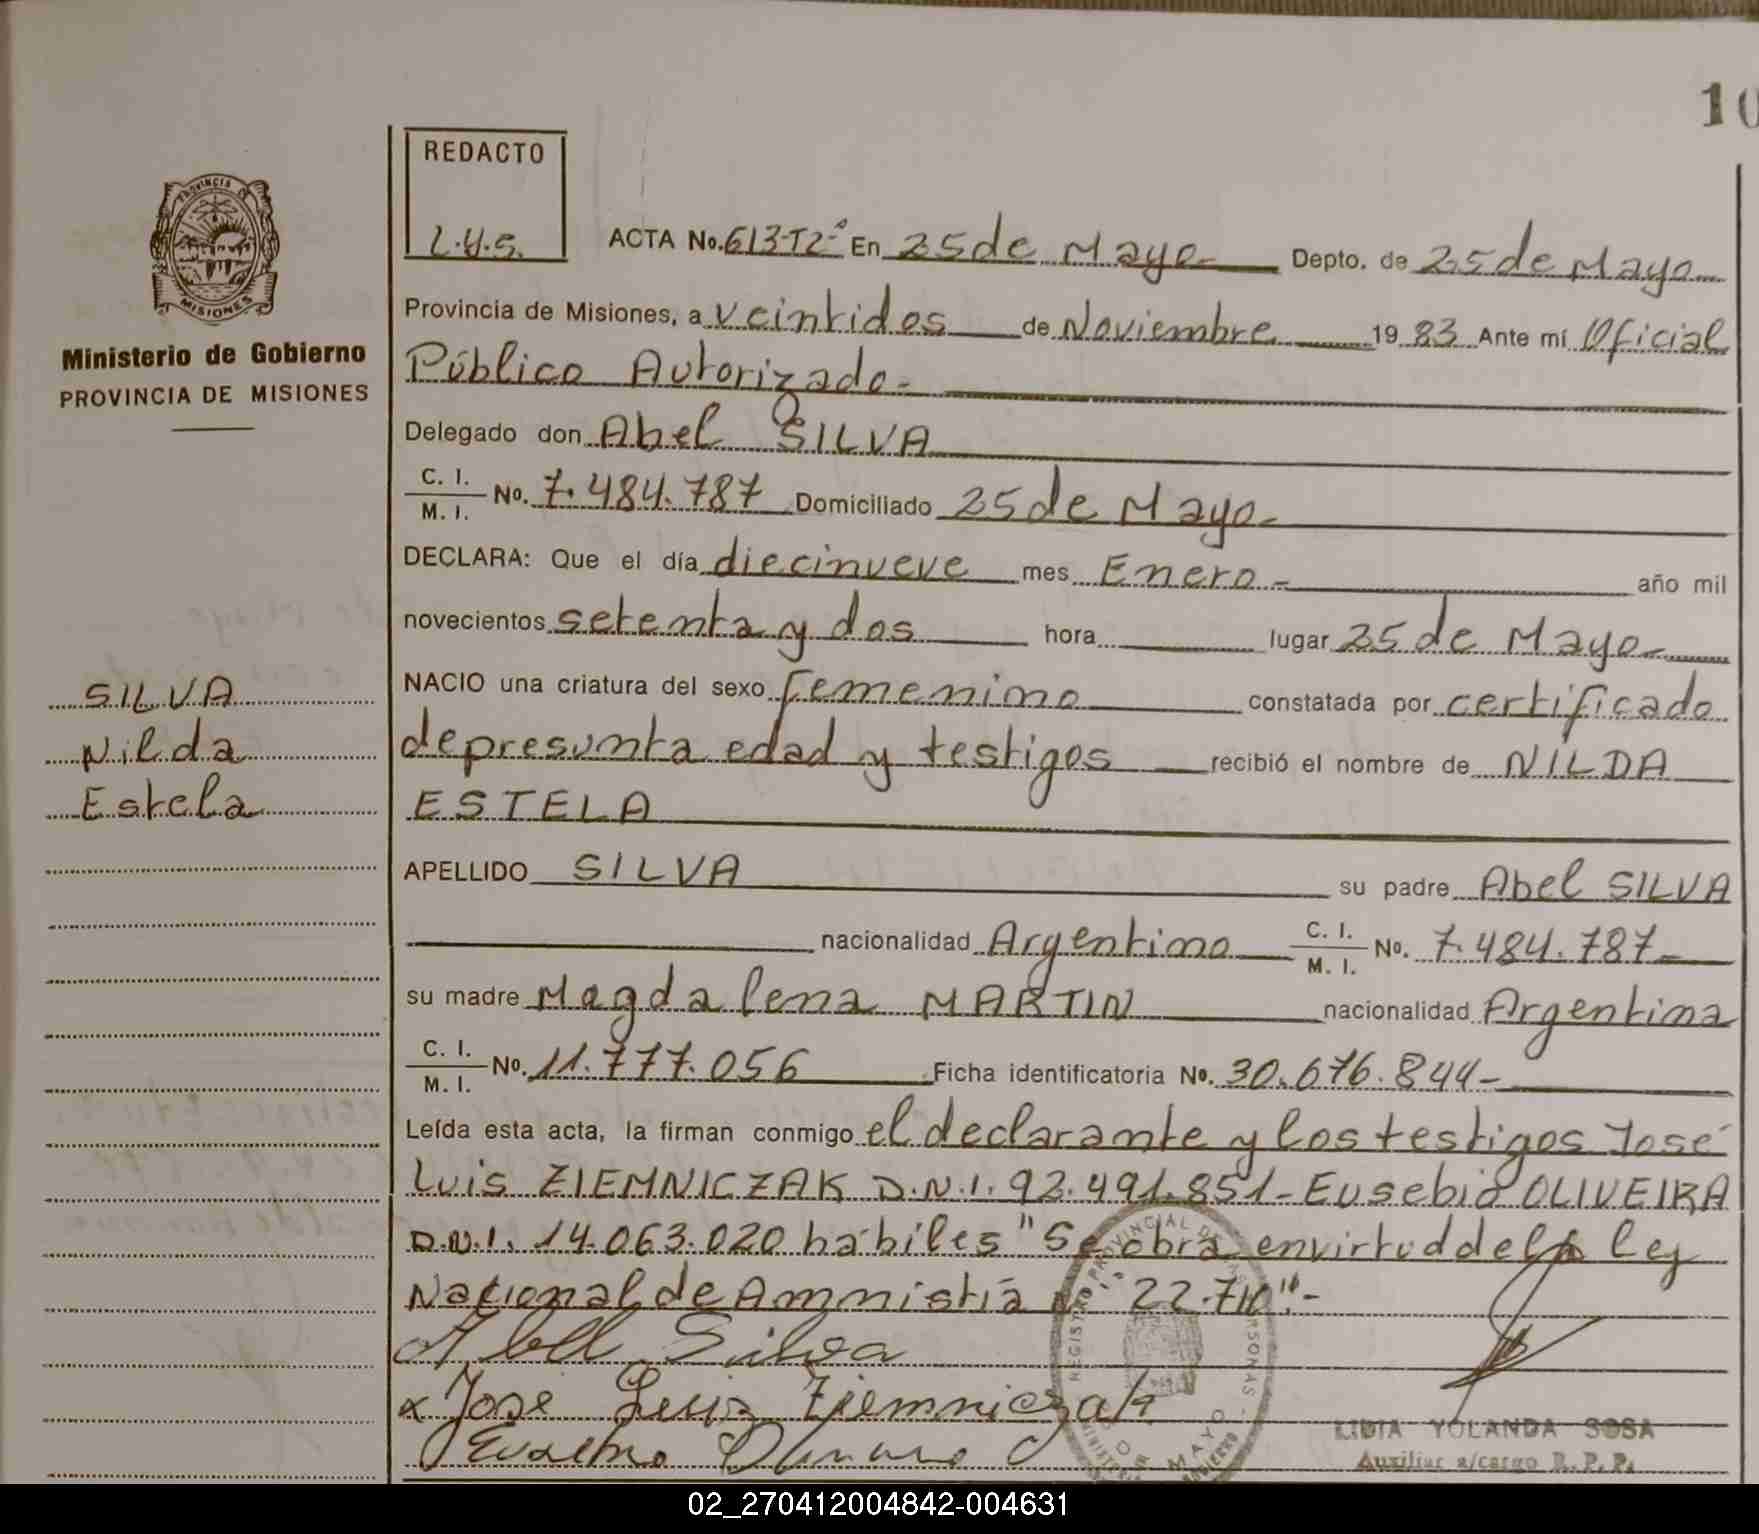 10
REDACTO
L.Y.S.
PROVINCIA DE
MISIONES
Ministerio de Gobierno
PROVINCIA DE MISIONES
ACTA No. 613-T2º En 25 de Mayo Depto. de 25 de Mayo
Provincia de Misiones, a veintidos de Noviembre 1983 Ante mí Oficial
Público Autorizado.-
Delegado don Abel SILVA
C. I. / M. I. No. 7.484.787 Domiciliado 25 de Mayo-
DECLARA: Que el día diecinueve mes Enero.- año mil
novecientos setenta y dos hora lugar 25 de Mayo-
NACIO una criatura del sexo femenino constatada por certificado
de presunta edad y testigos recibió el nombre de NILDA
ESTELA
SILVA
Nilda
Estela
APELLIDO SILVA su padre Abel SILVA
nacionalidad Argentino C. I. / M. I. No. 7.484.787-
su madre Magdalena MARTIN nacionalidad Argentina
C. I. / M. I. No. 11.777.056 Ficha identificatoria No. 30.676.844-
Leída esta acta, la firman conmigo el declarante y los testigos José
Luis ZIEMNICZAK D.N.I. 92.491.851- Eusebio OLIVEIRA
D.N.I. 14.063.020 hábiles "Se obra en virtud de la ley
Nacional de Amnistía Nº 22.710".-
Abel Silva
x Jose Luis Ziemniczak
REGISTRO PROVINCIAL DE LAS PERSONAS
LIDIA YOLANDA SOSA
Auxiliar a/cargo R. P. P.
02_270412004842-004631